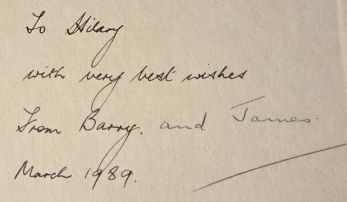 To Hilary
with very best wishes
From Barry. and James.
March 1989.